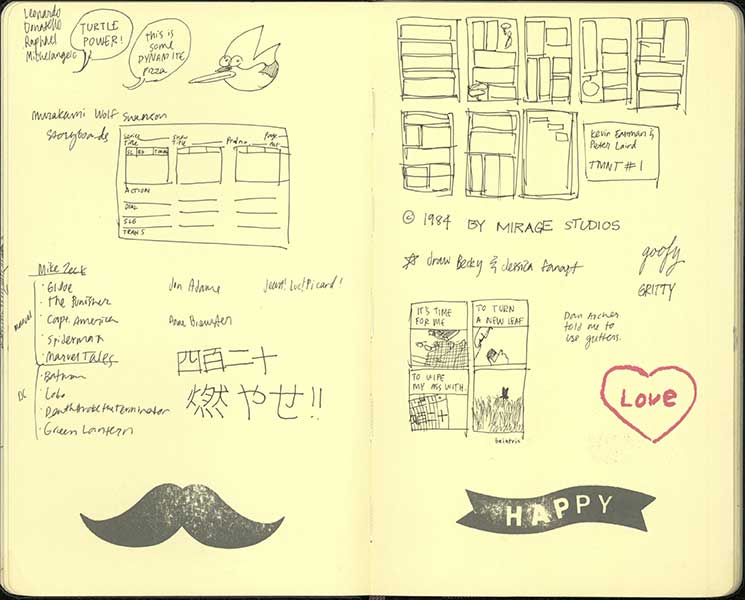 Leonardo
Donatello
Raphael
Michelangelo
TURTLE
POWER!
this is
some
DYNAMITE
pizza
murakami Wolf Swenson
storyboards
Series
Title
Show
Title
Prod no.
Page
ACTION
DIAL
TRANS
Mike Zeck
marvel
· GI Joe
· the Punisher
· Capt. America
· Spiderman
· Marvel Tales
DC
· Batman
· Lobo
· Deathstroke the Terminator
· Green Lantern
Jon Adams
Jean! Luc! Picard!
四百二十
燃やせ!!
Kevin Eastman &
Peter Laird
TMNT #1
© 1984 BY MIRAGE STUDIOS
☆ draw Becky & Jessica fanart
goofy
GRITTY
IT'S TIME
FOR ME
TO TURN
A NEW LEAF
TO WIPE
MY ASS WITH.
Dan Archer
told me to
use gutters.
LOVE
HAPPY